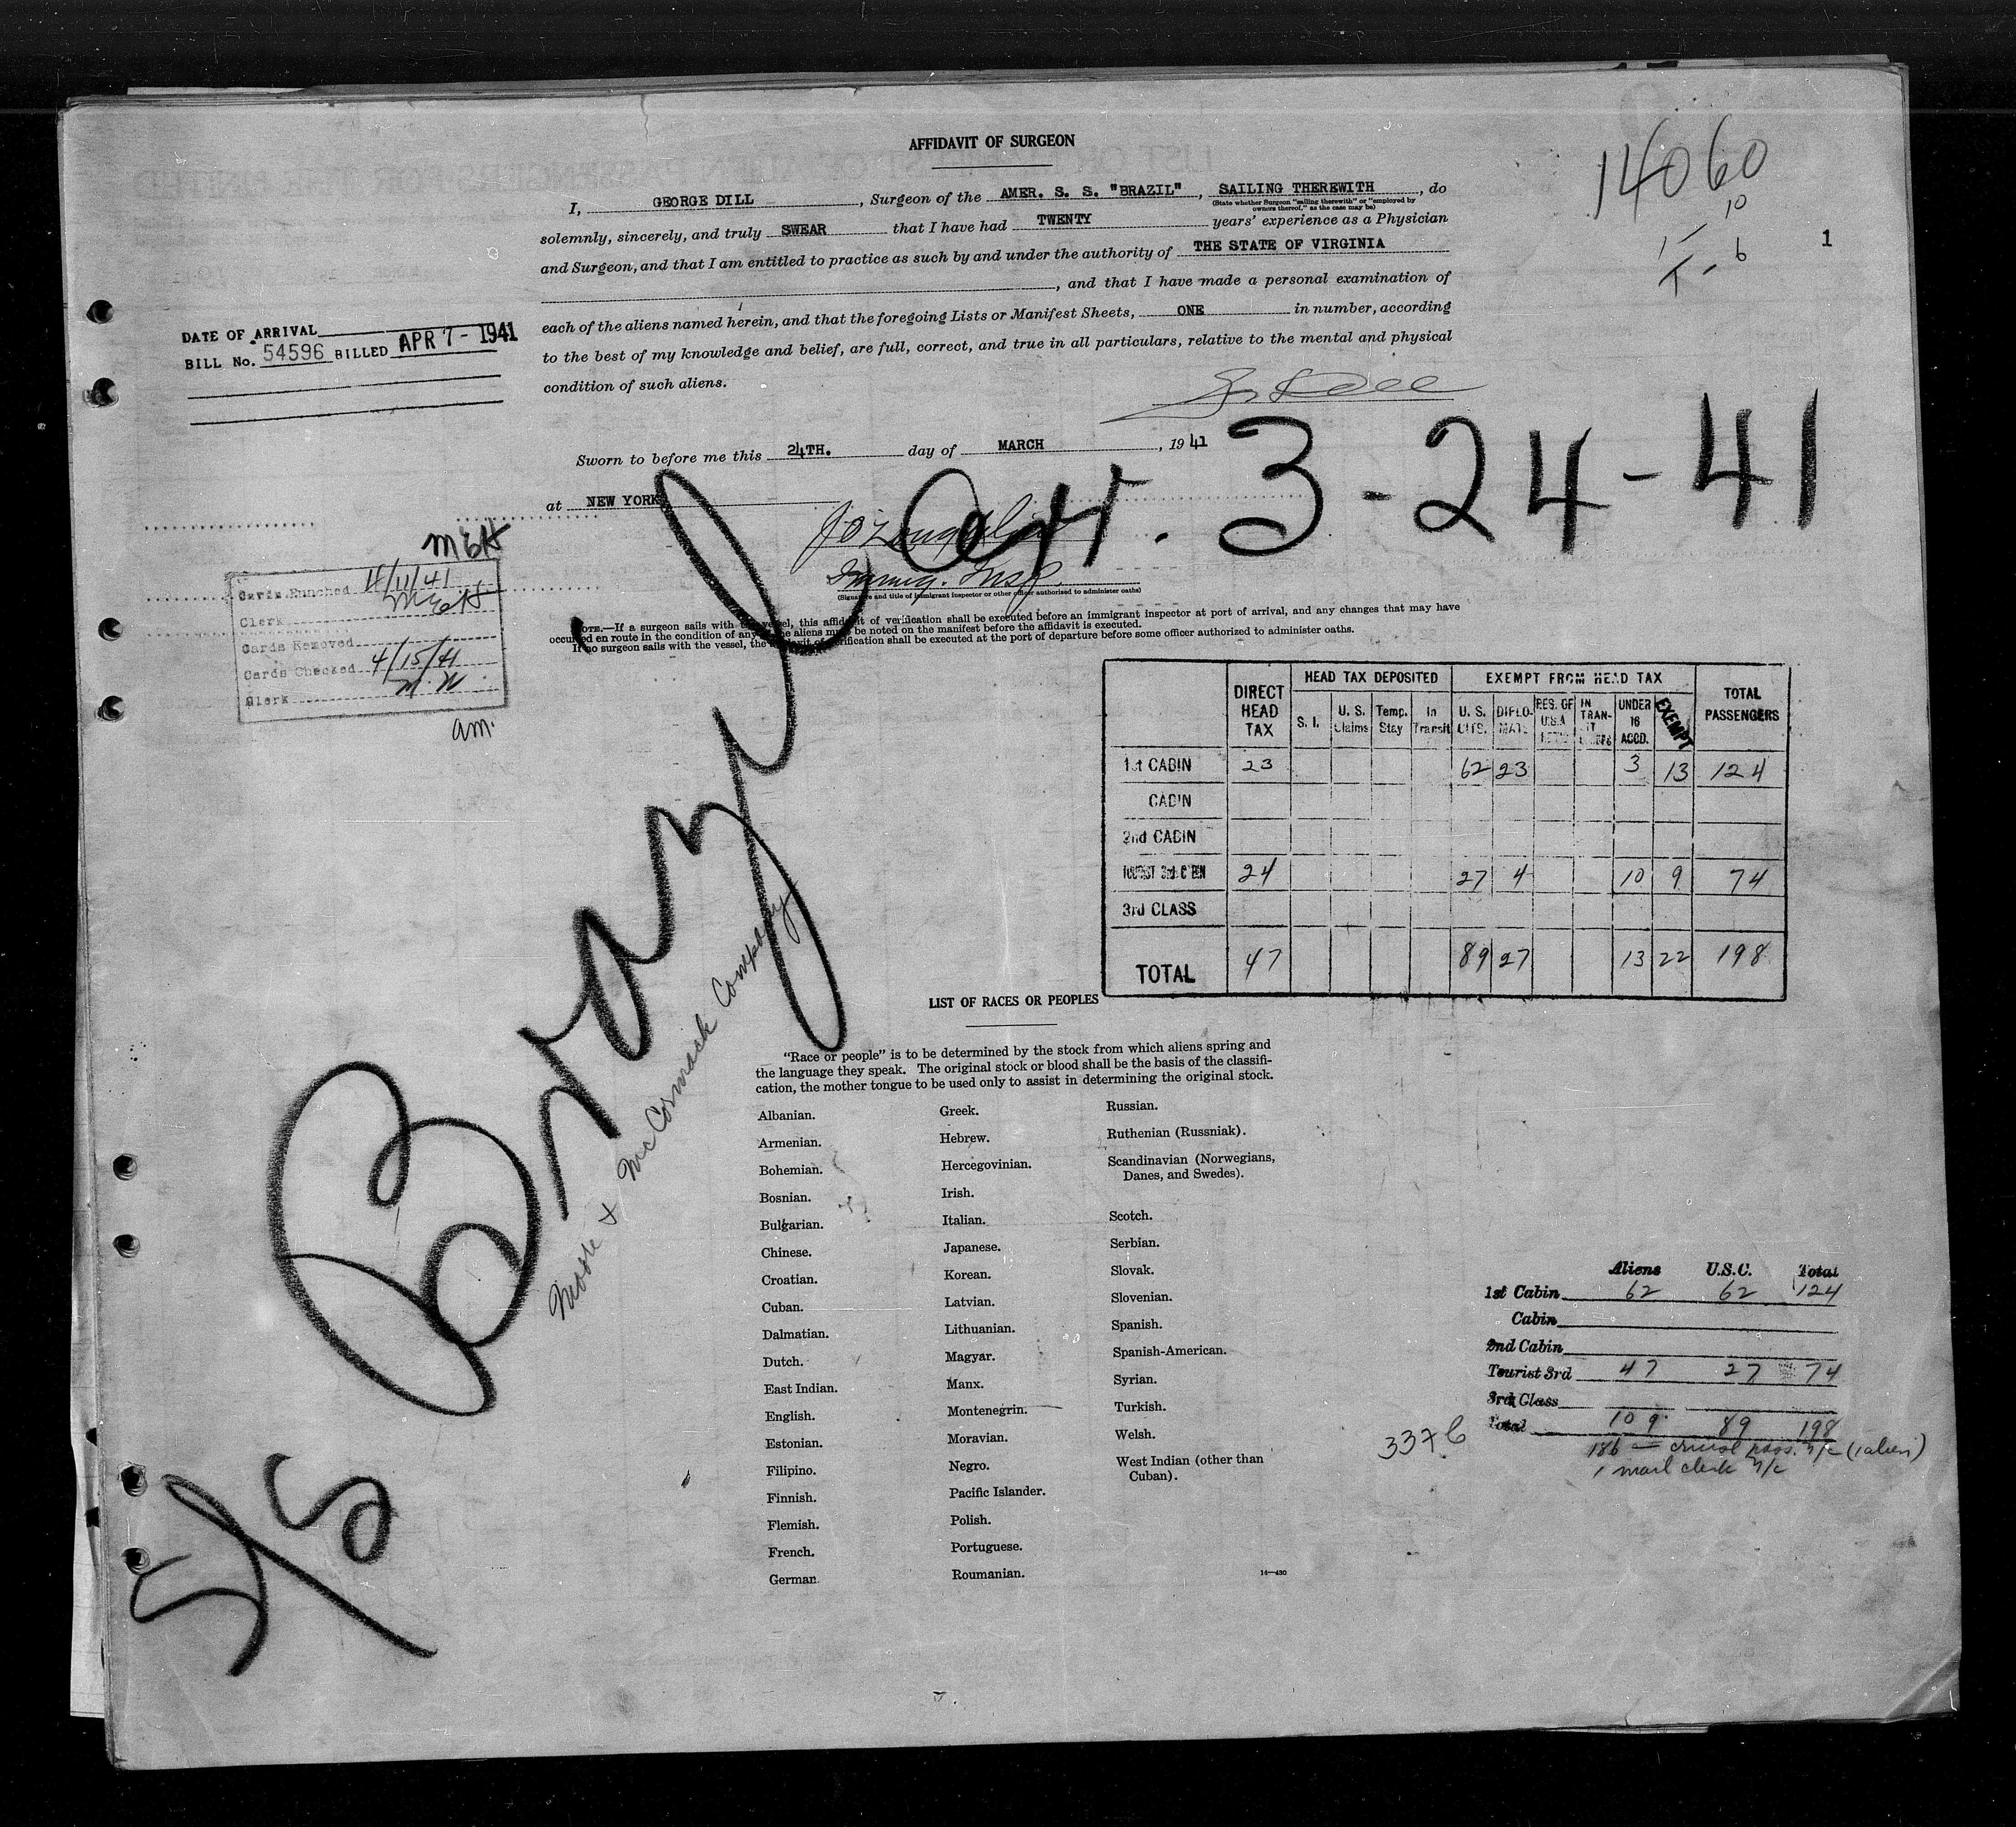 AFFIDAVIT OF SURGEON
14060
10
1 - 6
1
I, GEORGE DILL, Surgeon of the AMER. S. S. "BRAZIL", SAILING THEREWITH, do
(State whether Surgeon "sailing therewith" or "employed by owners thereof," as the case may be)
solemnly, sincerely, and truly SWEAR that I have had TWENTY years' experience as a Physician
and Surgeon, and that I am entitled to practice as such by and under the authority of THE STATE OF VIRGINIA
, and that I have made a personal examination of
each of the aliens named herein, and that the foregoing Lists or Manifest Sheets, ONE in number, according
to the best of my knowledge and belief, are full, correct, and true in all particulars, relative to the mental and physical
condition of such aliens.
DATE OF ARRIVAL
BILL No. 54596 BILLED APR 7 - 1941
Sworn to before me this 24TH. day of MARCH, 1941
at NEW YORK
Arr. 3-24-41
J O'Loughlin
Immig. Insp.
(Signature and title of immigrant inspector or other officer authorized to administer oaths)
Cards Punched 4/11/41
Clerk
Cards Removed
Cards Checked 4/15/41
Clerk M.W.
am.
NOTE.—If a surgeon sails with the vessel, this affidavit of verification shall be executed before an immigrant inspector at port of arrival, and any changes that may have
occurred en route in the condition of any of the aliens must be noted on the manifest before the affidavit is executed.
If no surgeon sails with the vessel, the affidavit of verification shall be executed at the port of departure before some officer authorized to administer oaths.
DIRECT HEAD TAX HEAD TAX DEPOSITED EXEMPT FROM HEAD TAX TOTAL PASSENGERS
S. I. U. S. Claims Temp. Stay In Transit U. S. CITS. DIPLOMATS RES. OF U.S.A IN TRANSIT UNDER 16 ACCD. EXEMPT
1st CABIN 23 62 23 3 13 124
CABIN
2nd CABIN
TOURIST 3rd CABIN 24 27 4 10 9 74
3rd CLASS
TOTAL 47 89 27 13 22 198
S/S Brazil
Moore & McCormack Company
LIST OF RACES OR PEOPLES
"Race or people" is to be determined by the stock from which aliens spring and
the language they speak. The original stock or blood shall be the basis of the classifi-
cation, the mother tongue to be used only to assist in determining the original stock.
Albanian.
Armenian.
Bohemian.
Bosnian.
Bulgarian.
Chinese.
Croatian.
Cuban.
Dalmatian.
Dutch.
East Indian.
English.
Estonian.
Filipino.
Finnish.
Flemish.
French.
German
Greek.
Hebrew.
Hercegovinian.
Irish.
Italian.
Japanese.
Korean.
Latvian.
Lithuanian.
Magyar.
Manx.
Montenegrin.
Moravian.
Negro.
Pacific Islander.
Polish.
Portuguese.
Roumanian.
Russian.
Ruthenian (Russniak).
Scandinavian (Norwegians,
Danes, and Swedes).
Scotch.
Serbian.
Slovak.
Slovenian.
Spanish.
Spanish-American.
Syrian.
Turkish.
Welsh.
West Indian (other than
Cuban).
14—430
Aliens U.S.C. Total
1st Cabin 62 62 124
Cabin
2nd Cabin
Tourist 3rd 47 27 74
3rd Class
Total 109 89 198
186 — cruise pass. n/c (1 alien)
1 mail clerk n/c
3376